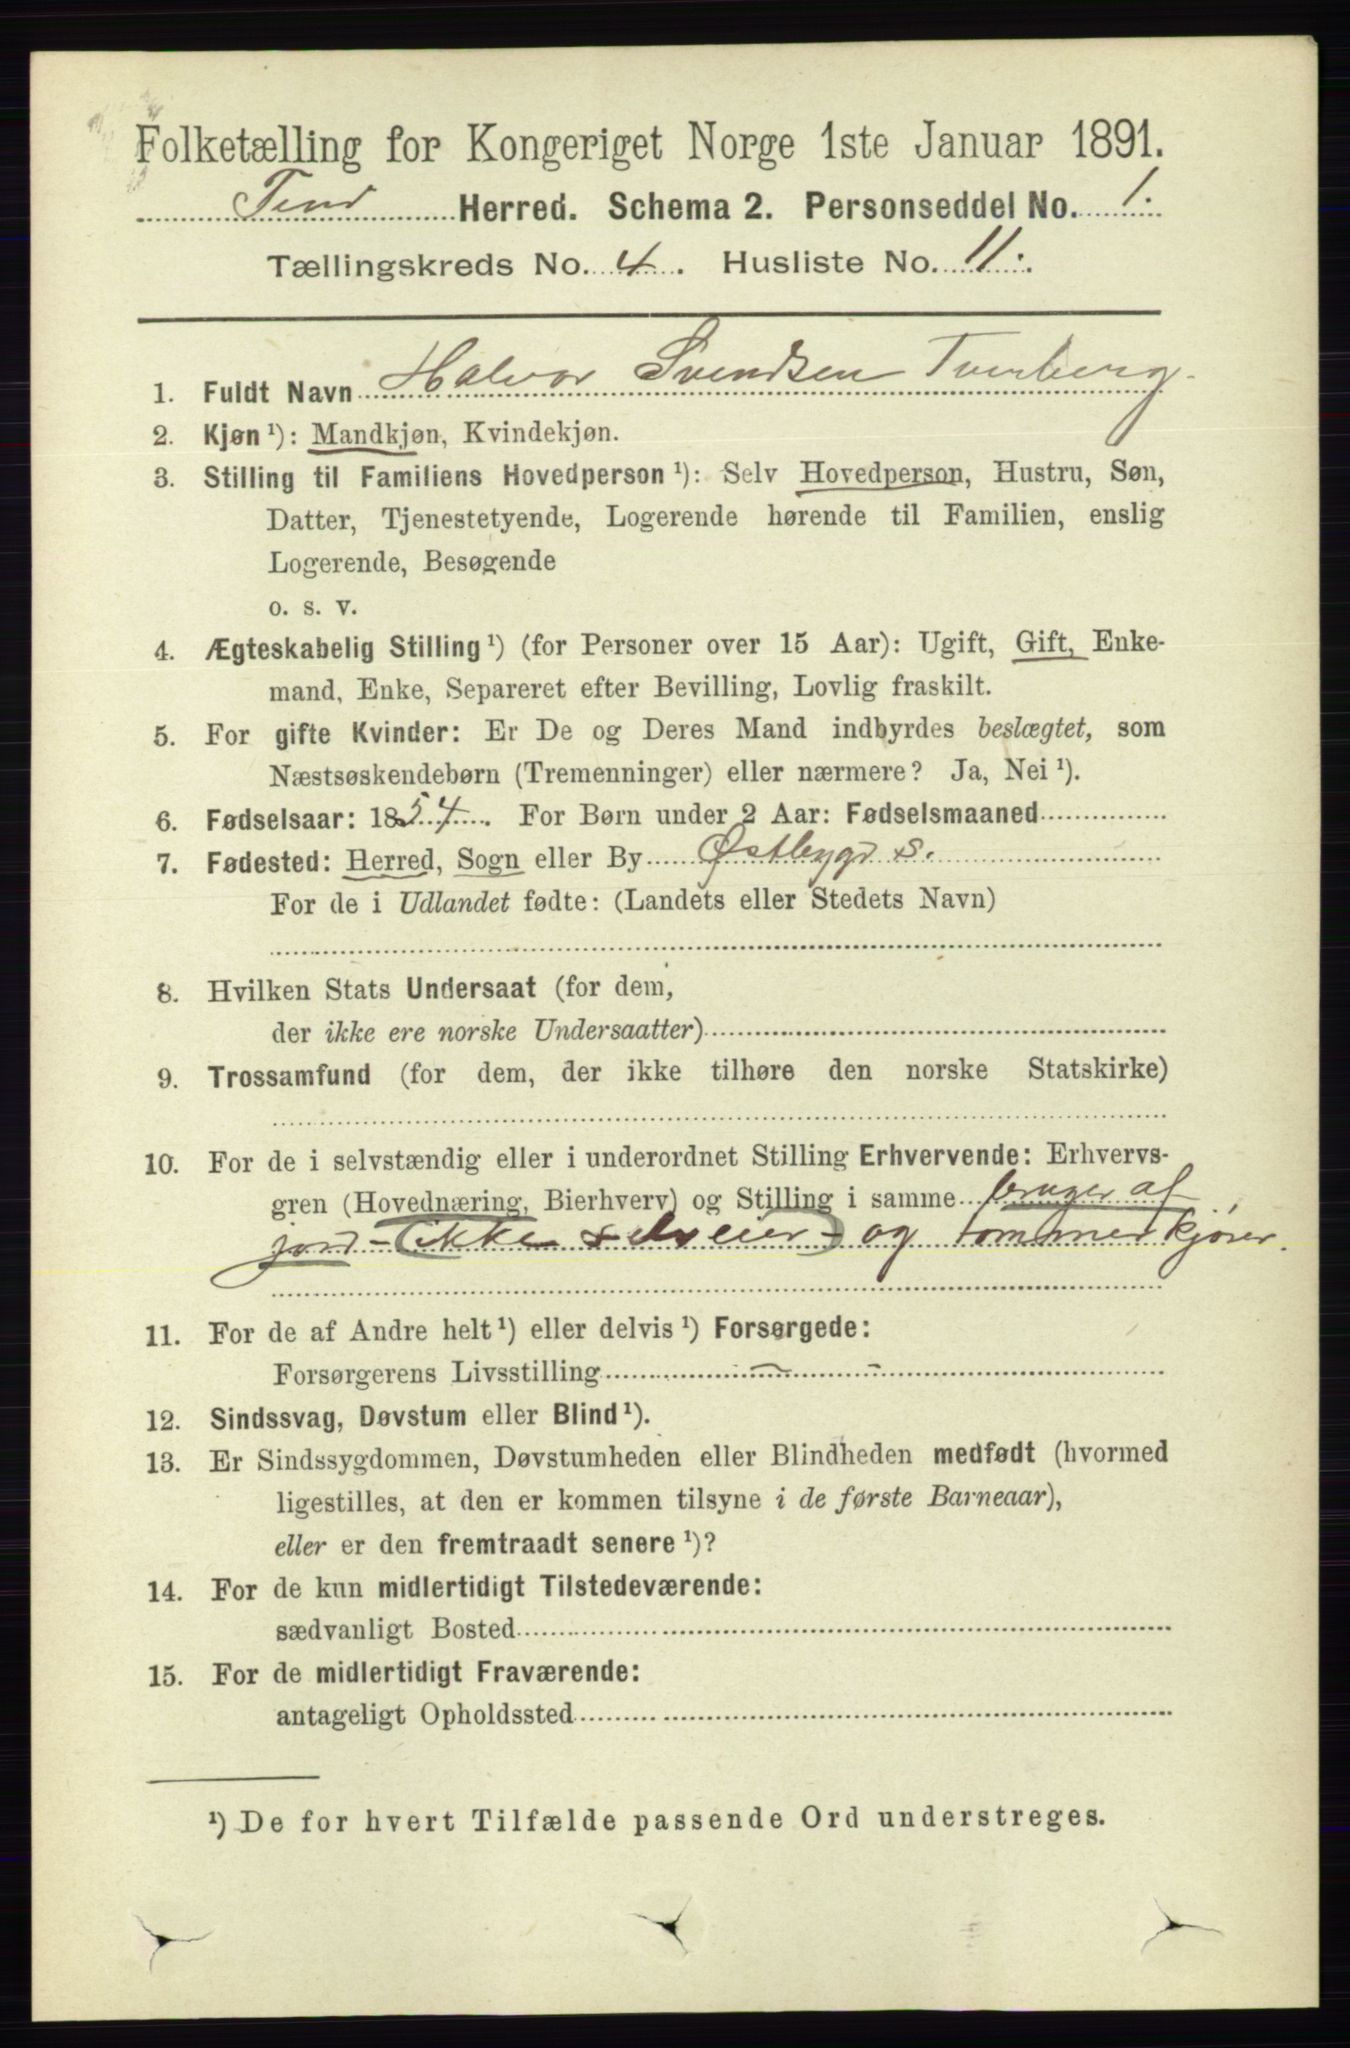 Folketælling for Kongeriget Norge 1ste Januar 1891.
Tind Herred. Schema 2. Personseddel No. 1.
Tællingskreds No. 4. Husliste No. 11.
1. Fuldt Navn Halvor Svendsen Tverberg.
2. Kjøn ¹): Mandkjøn, Kvindekjøn.
3. Stilling til Familiens Hovedperson ¹): Selv Hovedperson, Hustru, Søn,
Datter, Tjenestetyende, Logerende hørende til Familien, enslig
Logerende, Besøgende
o. s. v.
4. Ægteskabelig Stilling ¹) (for Personer over 15 Aar): Ugift, Gift, Enke-
mand, Enke, Separeret efter Bevilling, Lovlig fraskilt.
5. For gifte Kvinder: Er De og Deres Mand indbyrdes beslægtet, som
Næstsøskendebørn (Tremenninger) eller nærmere? Ja, Nei ¹).
6. Fødselsaar: 1854. For Børn under 2 Aar: Fødselsmaaned
7. Fødested: Herred, Sogn eller By Østbygd s.
For de i Udlandet fødte: (Landets eller Stedets Navn)
8. Hvilken Stats Undersaat (for dem,
der ikke ere norske Undersaatter)
9. Trossamfund (for dem, der ikke tilhøre den norske Statskirke)
10. For de i selvstændig eller i underordnet Stilling Erhvervende: Erhvervs-
gren (Hovednæring, Bierhverv) og Stilling i samme bruger af
jord - (ikke selveier) - og tømmerkjører.
11. For de af Andre helt ¹) eller delvis ¹) Forsørgede:
Forsørgerens Livsstilling
12. Sindssvag, Døvstum eller Blind ¹).
13. Er Sindssygdommen, Døvstumheden eller Blindheden medfødt (hvormed
ligestilles, at den er kommen tilsyne i de første Barneaar),
eller er den fremtraadt senere ¹)?
14. For de kun midlertidigt Tilstedeværende:
sædvanligt Bosted
15. For de midlertidigt Fraværende:
antageligt Opholdssted
¹) De for hvert Tilfælde passende Ord understreges.